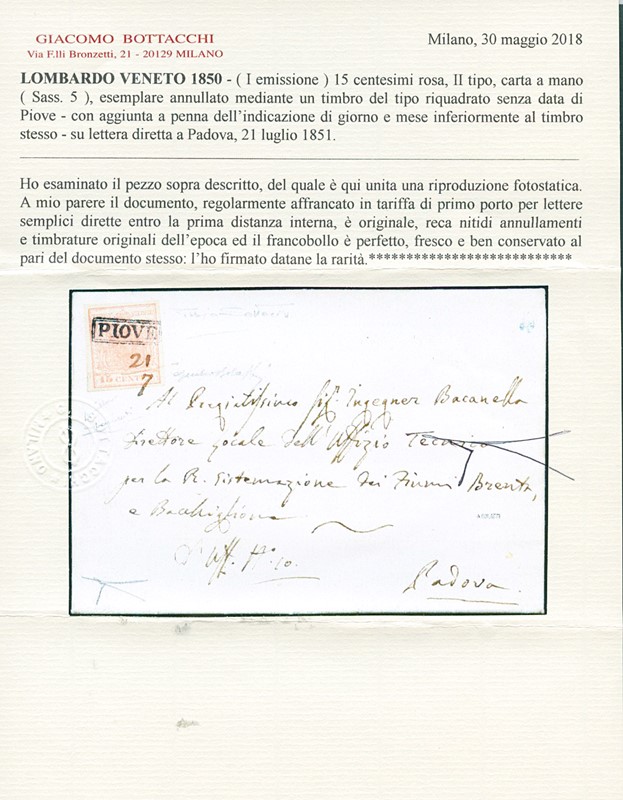 GIACOMO BOTTACCHI
Via F.lli Bronzetti, 21 - 20129 MILANO
Milano, 30 maggio 2018
LOMBARDO VENETO 1850 - ( I emissione ) 15 centesimi rosa, II tipo, carta a mano
( Sass. 5 ), esemplare annullato mediante un timbro del tipo riquadrato senza data di
Piove - con aggiunta a penna dell'indicazione di giorno e mese inferiormente al timbro
stesso - su lettera diretta a Padova, 21 luglio 1851.
Ho esaminato il pezzo sopra descritto, del quale è qui unita una riproduzione fotostatica.
A mio parere il documento, regolarmente affrancato in tariffa di primo porto per lettere
semplici dirette entro la prima distanza interna, è originale, reca nitidi annullamenti
e timbrature originali dell'epoca ed il francobollo è perfetto, fresco e ben conservato al
pari del documento stesso: l'ho firmato datane la rarità.****************************
PIOVE
21
7
15 CENTES
Al Pregiatissimo Sigr. Ingegner Bacanella
Direttore locale dell'Uffizio Tecnico
per la R. Sistemazione dei Fiumi Brenta,
e Bacchiglione
Padova.